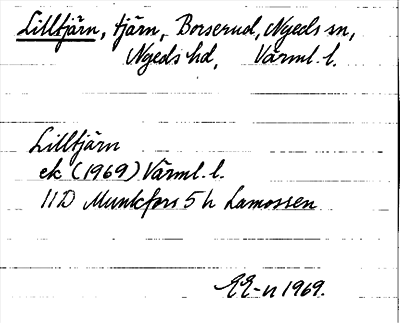 Lilltjärn, tjärn, Borserud, Nyeds sn,
Nyeds hd, Värml. l.
Lilltjärn
ek (1969) Värml. l.
11D Munkfors 5 h Lamossen
EE-n 1969.